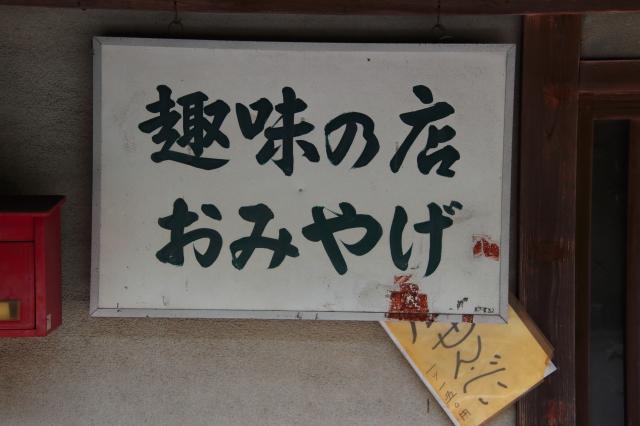 趣味の店
おみやげ